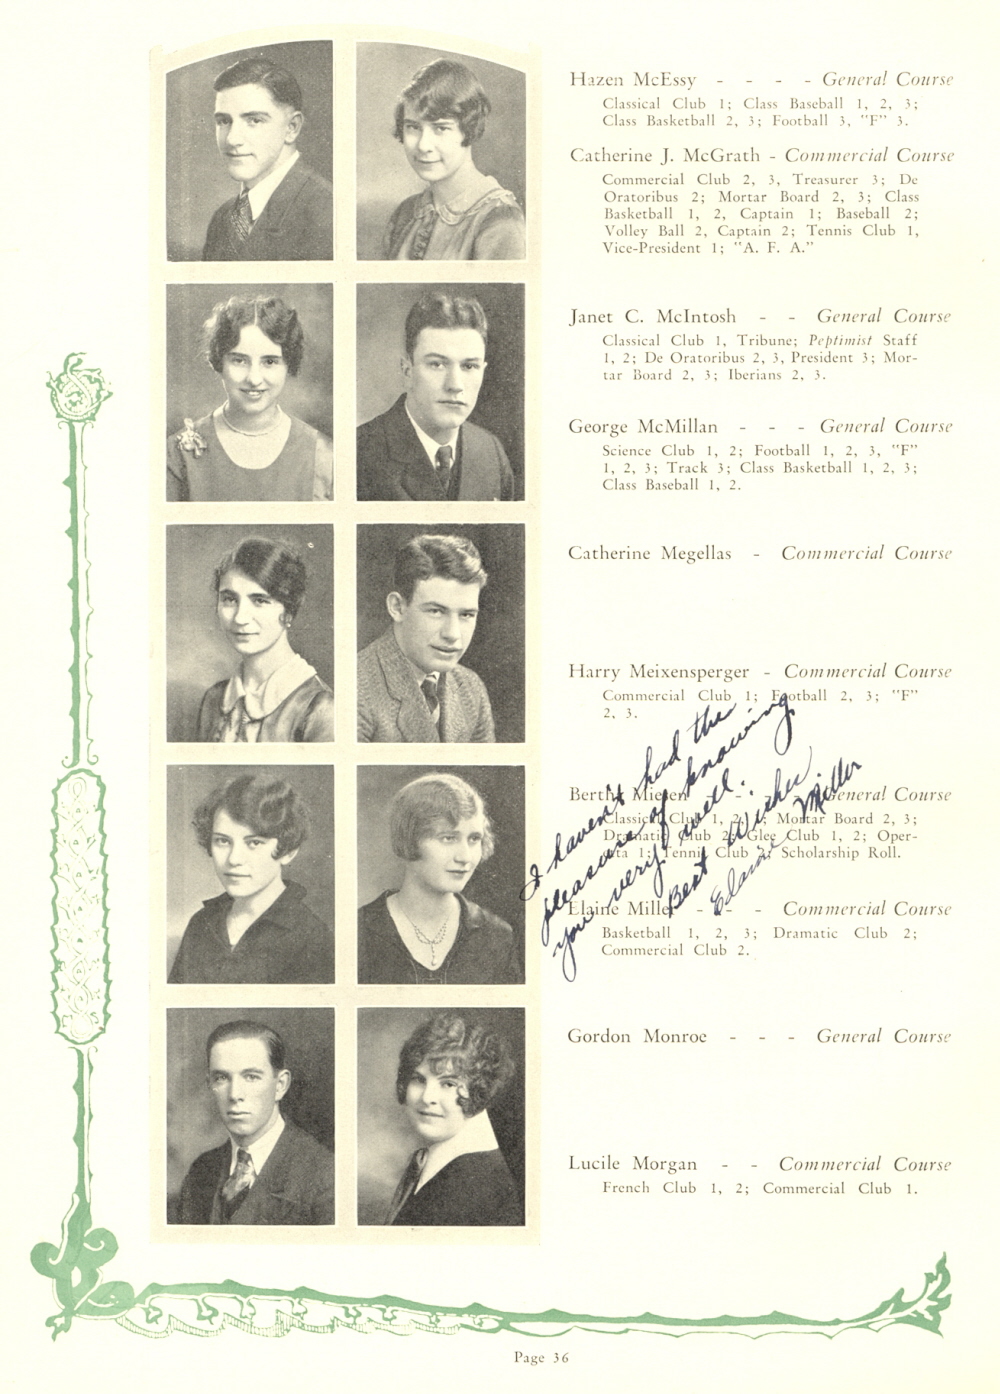 Hazen McEssy - - - - General Course
Classical Club 1; Class Baseball 1, 2, 3;
Class Basketball 2, 3; Football 3, "F" 3.
Catherine J. McGrath - Commercial Course
Commercial Club 2, 3, Treasurer 3; De
Oratoribus 2; Mortar Board 2, 3; Class
Basketball 1, 2, Captain 1; Baseball 2;
Volley Ball 2, Captain 2; Tennis Club 1,
Vice-President 1; "A. F. A."
Janet C. McIntosh - - General Course
Classical Club 1, Tribune; Peptimist Staff
1, 2; De Oratoribus 2, 3, President 3; Mor-
tar Board 2, 3; Iberians 2, 3.
George McMillan - - - General Course
Science Club 1, 2; Football 1, 2, 3, "F"
1, 2, 3; Track 3; Class Basketball 1, 2, 3;
Class Baseball 1, 2.
Catherine Megellas - Commercial Course
Harry Meixensperger - Commercial Course
Commercial Club 1; Football 2, 3; "F"
2, 3.
I haven't had the
pleasure of knowing
you very well.
Best Wishes
Elaine Miller
Bertha Miesen - - - General Course
Classical Club 1, 2, Mortar Board 2, 3;
Dramatic Club 2; Glee Club 1, 2; Oper-
etta 1; Tennis Club Scholarship Roll.
Elaine Miller - - - Commercial Course
Basketball 1, 2, 3; Dramatic Club 2;
Commercial Club 2.
Gordon Monroe - - - General Course
Lucile Morgan - - Commercial Course
French Club 1, 2; Commercial Club 1.
Page 36